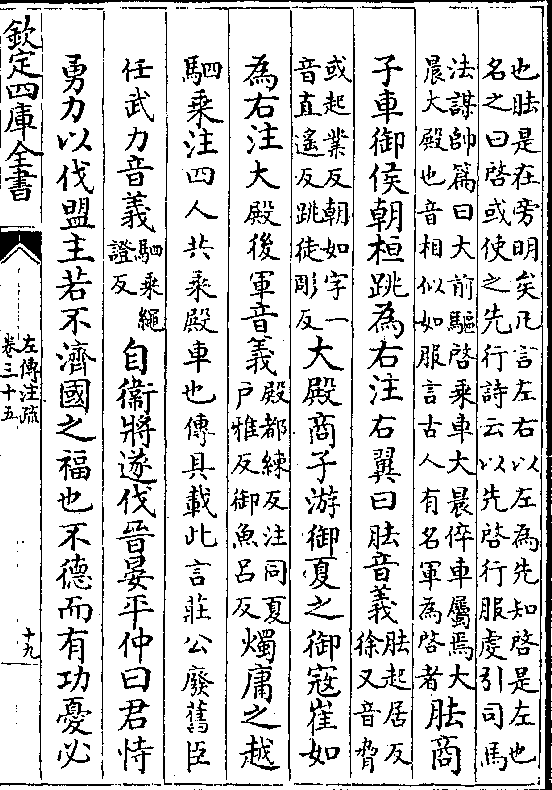 也胠是在旁明矣凡言左右以左為先知啓是左也
名之曰啓或使之先行詩云以先啓行服虔引司馬
法謀帥篇曰大前驅啓乘車大晨倅車屬焉大
晨大殿也音相似如服言古人有名軍為啓者
胠商
子車御侯朝桓跳為右注右翼曰胠音義
胠起居反
徐又音脅
或起業反朝如字一
音直遙反跳徒彫反
大殿商子游御夏之御寇崔如
為右注大殿後軍音義
殿都練反注同夏
戶雅反御魚呂反
燭庸之越
駟乘注四人共乘殿車也傳具載此言莊公廢舊臣
任武力音義
駟乘繩
證反
自衞將遂伐晉晏平仲曰君恃
勇力以伐盟主若不濟國之福也不德而有功憂必
欽定四庫全書
左傳注疏
卷三十五
十九